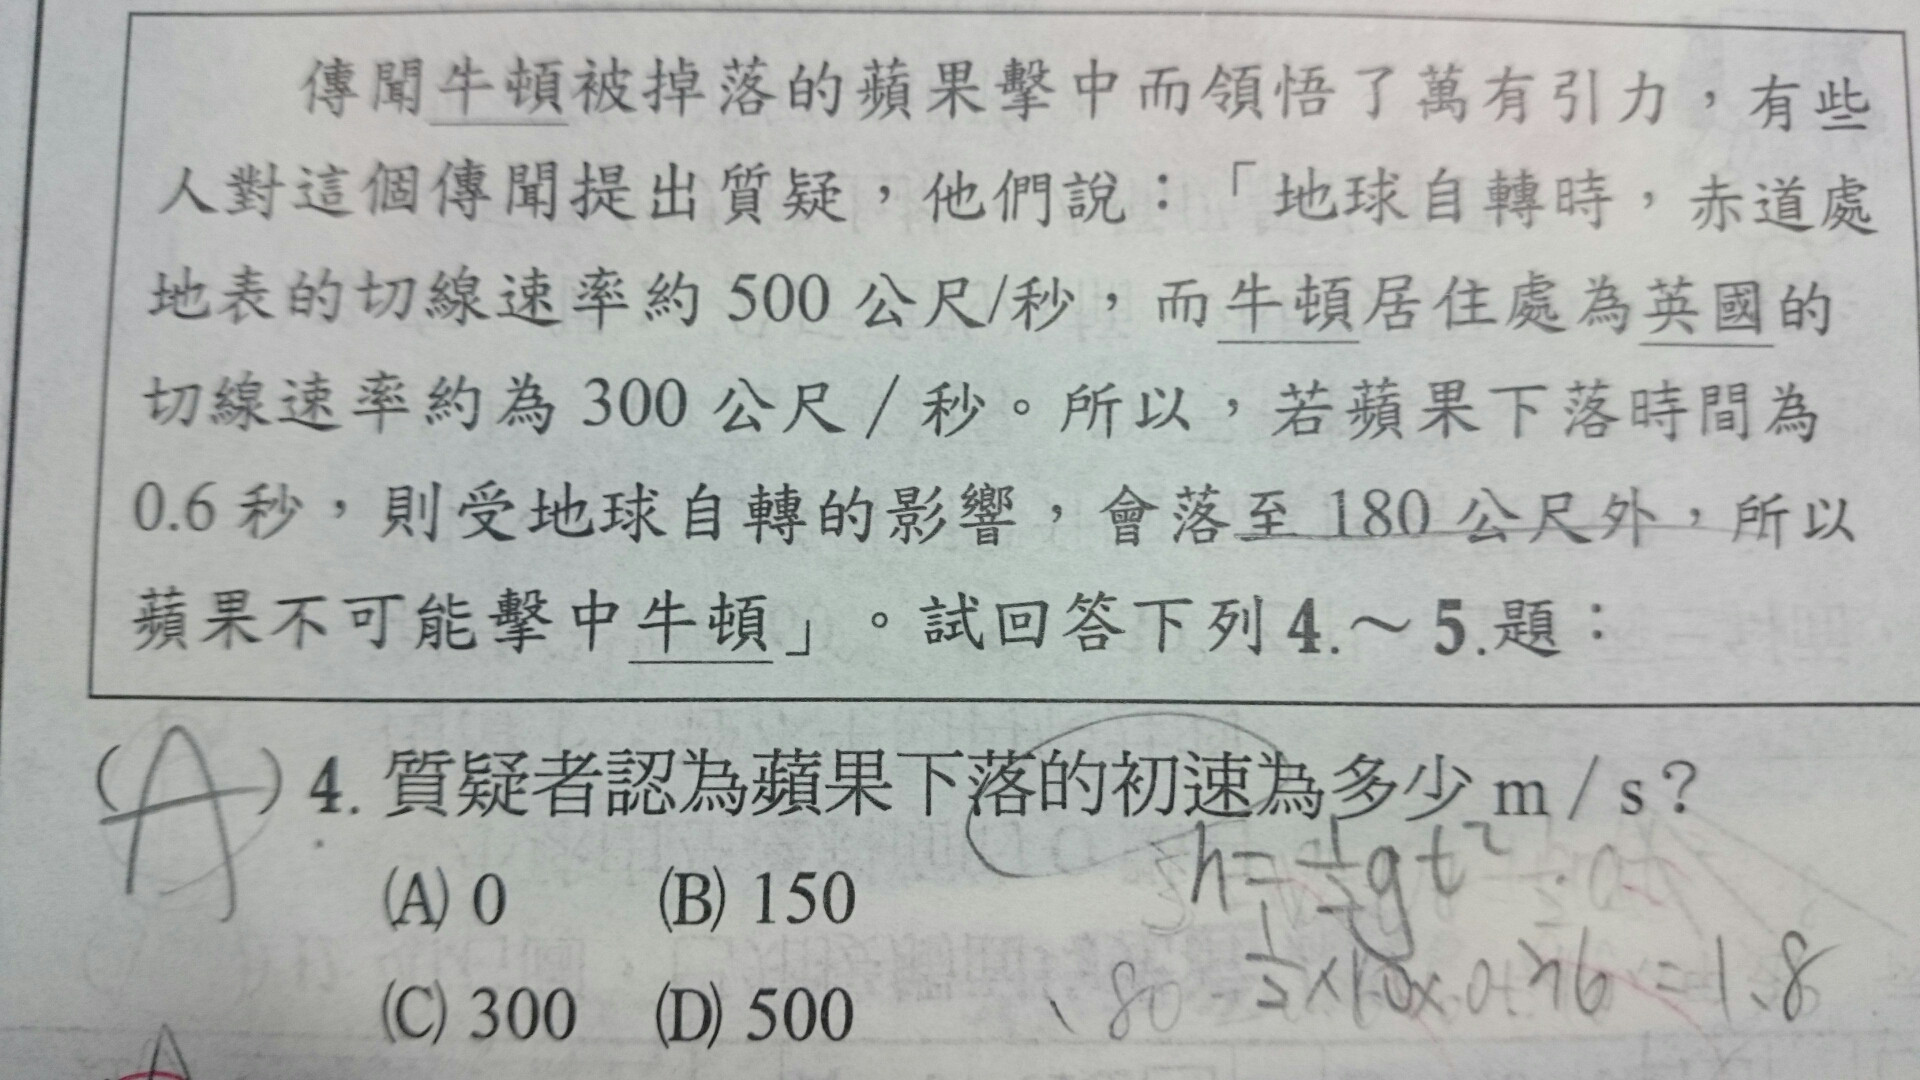 傳聞牛頓被掉落的蘋果擊中而領悟了萬有引力，有些
人對這個傳聞提出質疑，他們說：「地球自轉時，赤道處
地表的切線速率約 500 公尺/秒，而牛頓居住處為英國的
切線速率約為 300 公尺／秒。所以，若蘋果下落時間為
0.6 秒，則受地球自轉的影響，會落至 180 公尺外，所以
蘋果不可能擊中牛頓」。試回答下列 4.～ 5.題：
(A) 4. 質疑者認為蘋果下落的初速為多少 m／s？
h=½gt²
(A) 0 (B) 150
=1.8
(C) 300 (D) 500